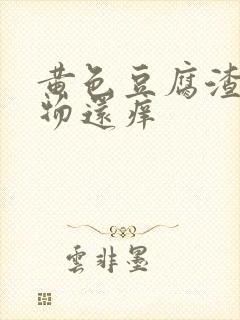 黄色豆腐渣
物還痒
雲非墨